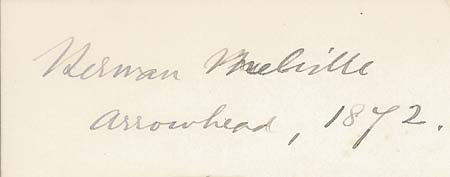 Herman Melville
Arrowhead, 1872.